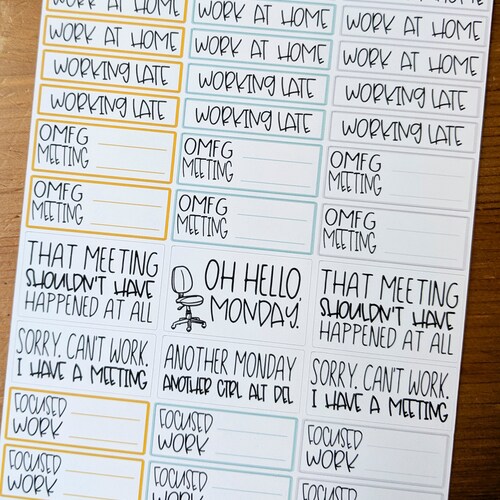 WORK AT HOME
WORK AT HOME
WORK AT HOME
WORK AT HOME
WORK AT HOME
WORK AT HOME
WORKING LATE
WORKING LATE
WORKING LATE
WORKING LATE
WORKING LATE
WORKING LATE
OMFG
MEETING
OMFG
MEETING
OMFG
MEETING
OMFG
MEETING
OMFG
MEETING
OMFG
MEETING
THAT MEETING
SHOULDN'T HAVE
HAPPENED AT ALL
OH HELLO,
MONDAY.
THAT MEETING
SHOULDN'T HAVE
HAPPENED AT ALL
SORRY. CAN'T WORK.
I HAVE A MEETING
ANOTHER MONDAY
ANOTHER CTRL ALT DEL
SORRY. CAN'T WORK.
I HAVE A MEETING
FOCUSED
WORK
FOCUSED
WORK
FOCUSED
WORK
FOCUSED
WORK
FOCUSED
WORK
FOCUSED